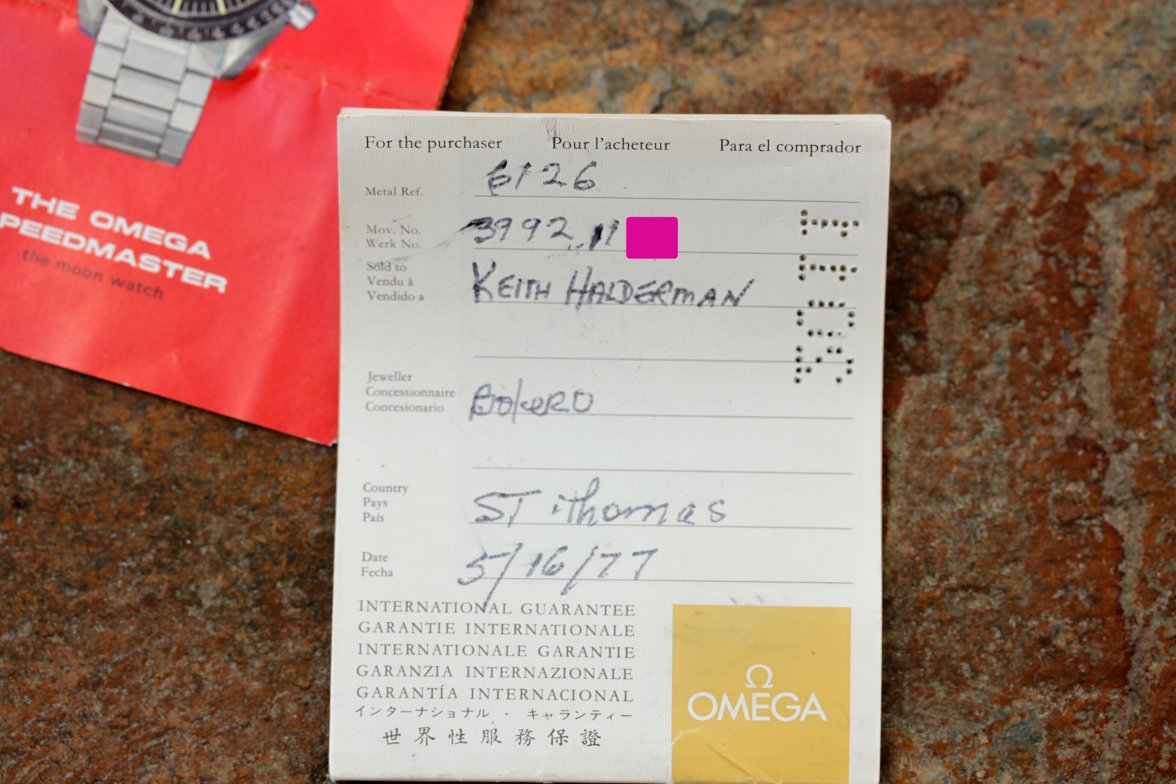 THE OMEGA
PEEDMASTER
the moon watch
For the purchaser Pour l'acheteur Para el comprador
Metal Ref. 6126
Mov. No. 3992 11
Werk No.
Sold to KEITH HALDERMAN
Vendu à
Vendido a
Jeweller
Concessionnaire
Concesionario
Country ST thomas
Pays
País
Date 5/16/77
Fecha
INTERNATIONAL GUARANTEE
GARANTIE INTERNATIONALE
INTERNATIONALE GARANTIE
GARANZIA INTERNAZIONALE
GARANTÍA INTERNACIONAL
インターナショナル ・ ギャランティー
世界性服務保證
Ω
OMEGA